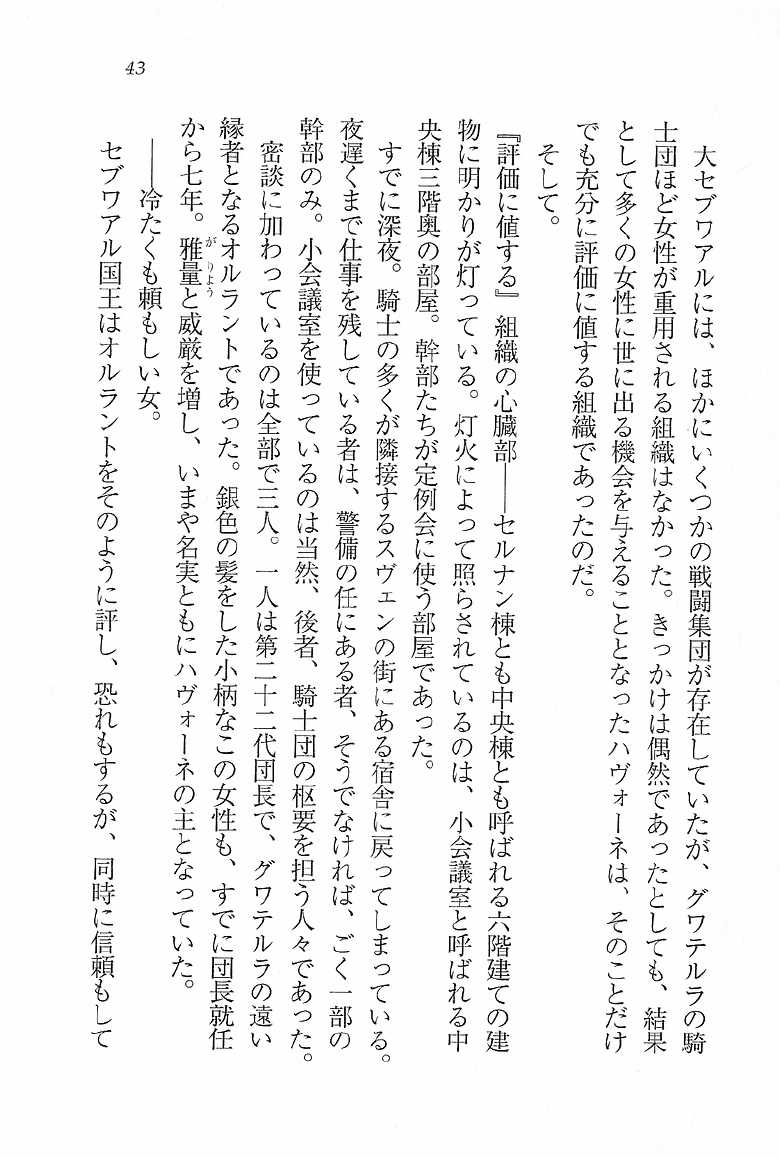 43
大セブワアルには、ほかにいくつかの戦闘集団が存在していたが、グワテルラの騎
士団ほど女性が重用される組織はなかった。きっかけは偶然であったとしても、結果
として多くの女性に世に出る機会を与えることとなったハヴォーネは、そのことだけ
でも充分に評価に値する組織であったのだ。
そして。
『評価に値する』組織の心臓部――セルナン棟とも中央棟とも呼ばれる六階建ての建
物に明かりが灯っている。灯火によって照らされているのは、小会議室と呼ばれる中
央棟三階奥の部屋。幹部たちが定例会に使う部屋であった。
すでに深夜。騎士の多くが隣接するスヴェンの街にある宿舎に戻ってしまっている。
夜遅くまで仕事を残している者は、警備の任にある者、そうでなければ、ごく一部の
幹部のみ。小会議室を使っているのは当然、後者、騎士団の枢要を担う人々であった。
密談に加わっているのは全部で三人。一人は第二十二代団長で、グワテルラの遠い
縁者となるオルラントであった。銀色の髪をした小柄なこの女性も、すでに団長就任
から七年。雅量と威厳を増し、いまや名実ともにハヴォーネの主となっていた。
がりよう
――冷たくも頼もしい女。
セブワアル国王はオルラントをそのように評し、恐れもするが、同時に信頼もして